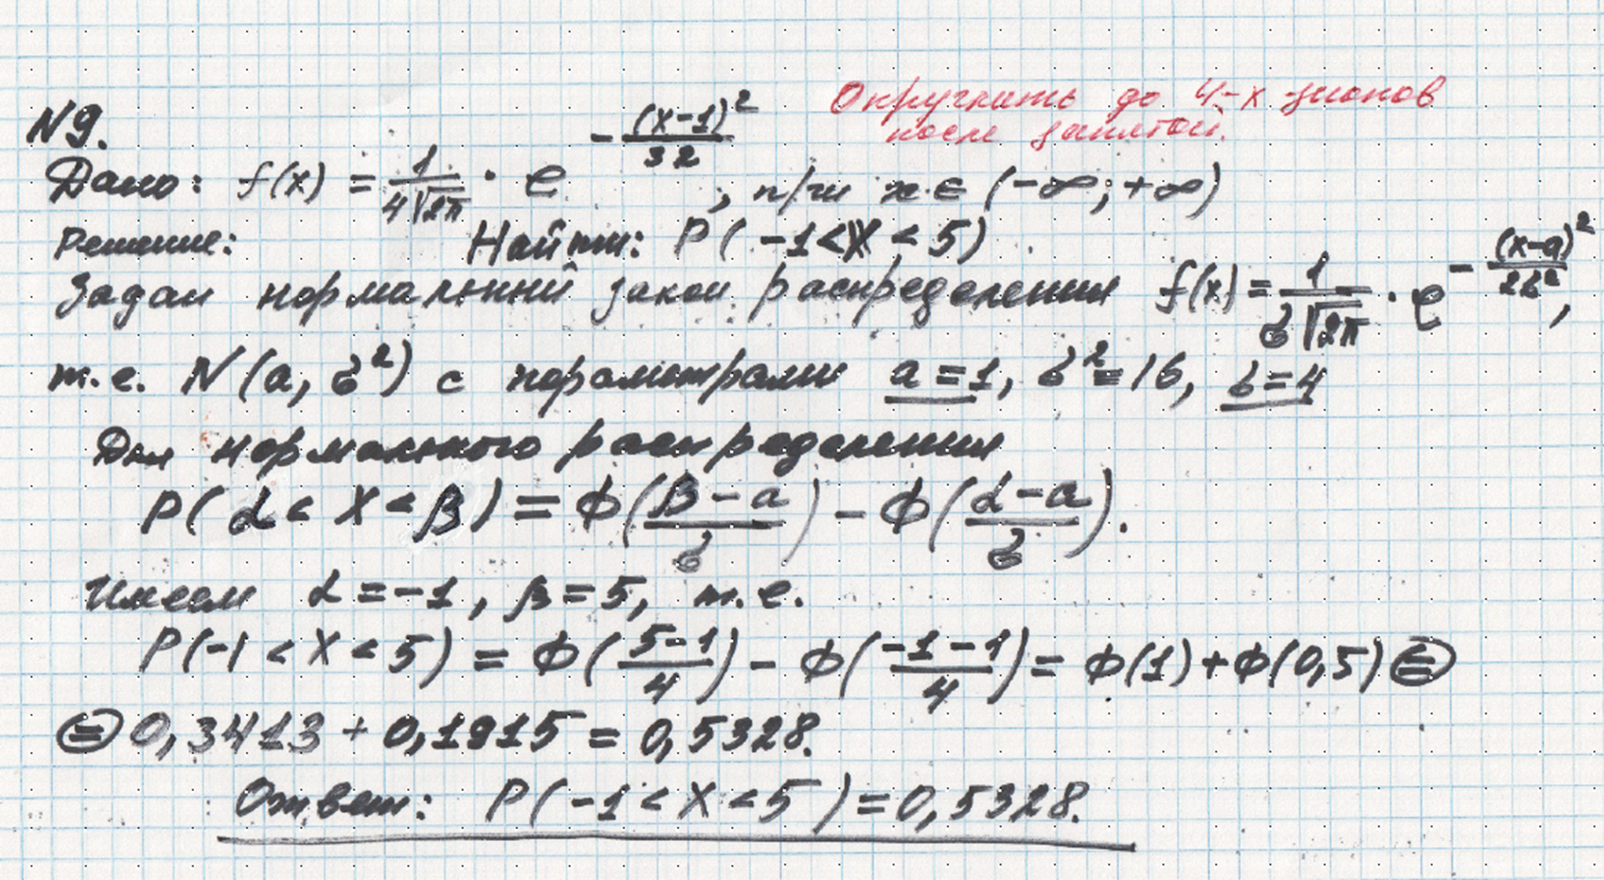 Округлить до 4-х знаков
после запятой.
N9.
Дано: f(x) = 1/(4√2π) · e^(-(x-1)²/32), при x ∈ (-∞; +∞)
Решение: Найти: P(-1<X<5)
Задан нормальный закон распределения f(x) = 1/(σ√2π) · e^(-(x-a)²/2σ²),
т.е. N(a, σ²) с параметрами a=1, σ²=16, σ=4
Для нормального распределения
P(α < X < β) = Ф((β-a)/σ) - Ф((α-a)/σ).
Имеем α=-1, β=5, т.е.
P(-1 < X < 5) = Ф((5-1)/4) - Ф((-1-1)/4) = Ф(1)+Ф(0,5) ⊜
⊜ 0,3413 + 0,1915 = 0,5328.
Ответ: P(-1 < X < 5) = 0,5328.